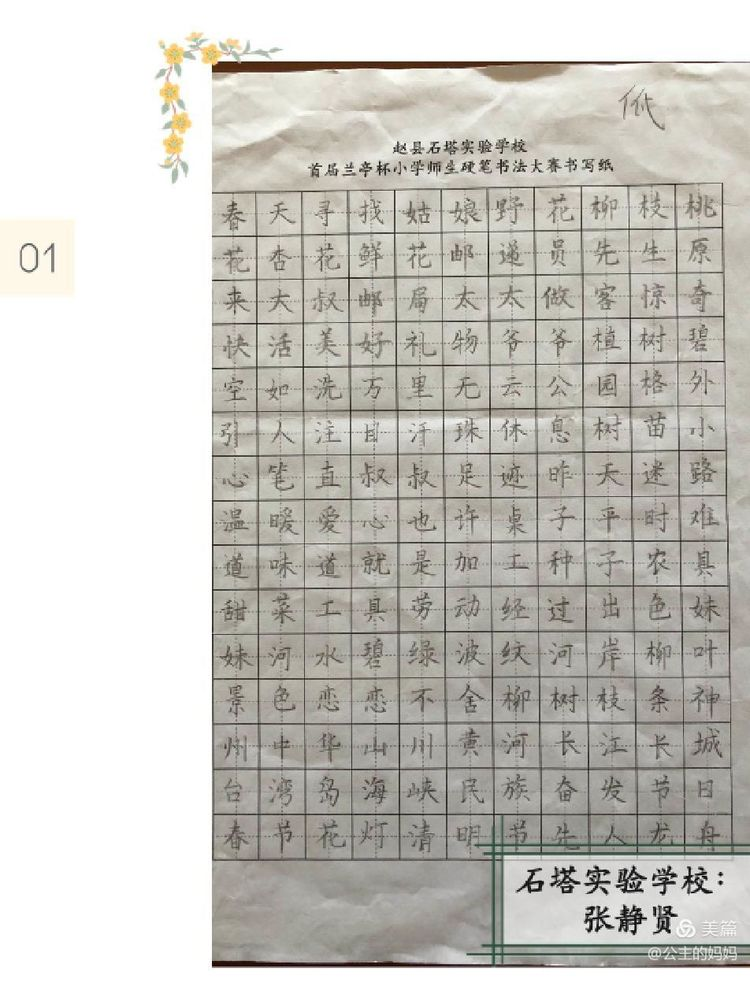 低
赵县石塔实验学校
首届兰亭杯小学师生硬笔书法大赛书写纸
春天寻找姑娘野花柳枝桃
花杏花鲜花邮递员先生原
01
来大叔邮局太太做客惊奇
快活美好礼物爷爷植树碧
空如洗万里无云公园格外
引人注目汗珠休息树苗小
心笔直叔叔足迹昨天迷路
温暖爱心也许桌子平时难
道味道就是加工种子农具
甜菜工具劳动经过出色妹
妹河水碧绿波纹河岸柳叶
景色恋恋不舍柳树枝条神
州中华山川黄河长江长城
台湾岛海峡民族奋发节日
春节花灯清明节先人龙舟
石塔实验学校:
张静贤
美篇
@公主的妈妈